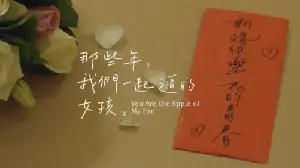 那些年，
我們一起追的
女孩。
You Are the Apple of
My Eye
新婚快樂
我的青春